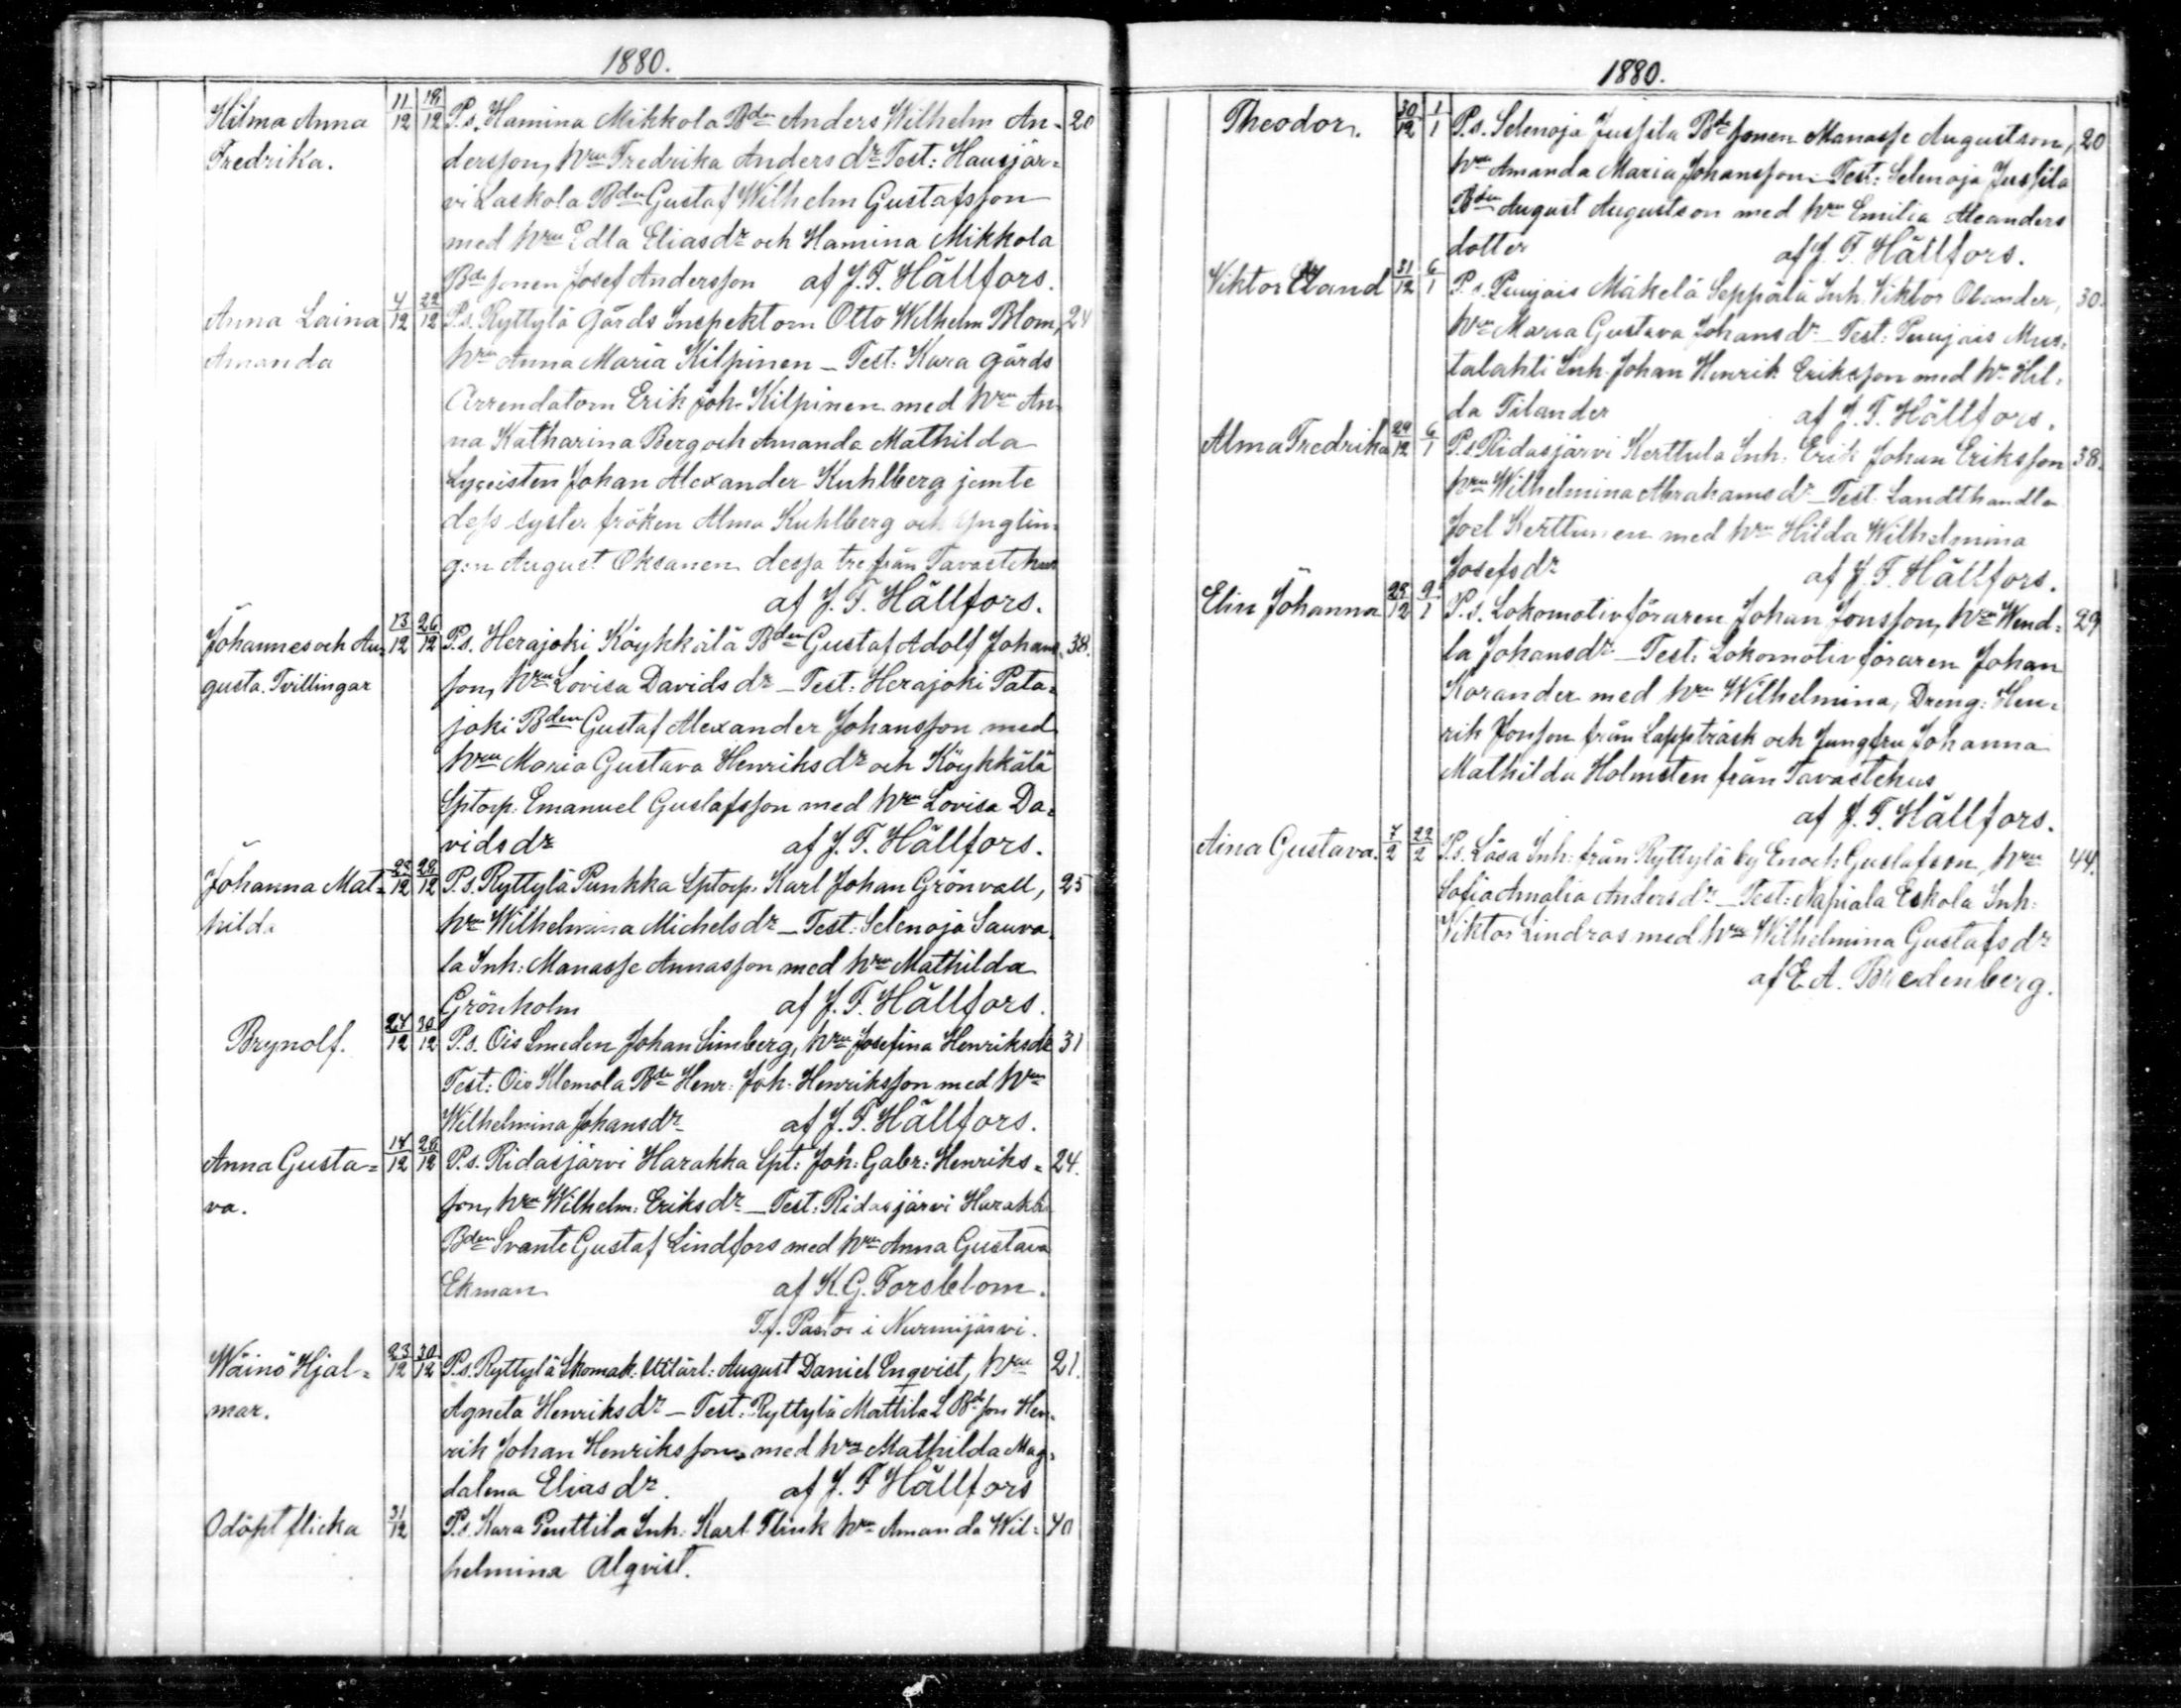 1880.
Hilma Anna 11/12 19/12 P.s. Hamina Mikkola Bdn Anders Wilhelm An- 20
Fredrika. dersson, hru Fredrika Anders dr Test: Hausjär-
vi Laskola Bdn Gustaf Wilhelm Gustafsson
med hru Edla Eliasdr och Hamina Mikkola
Bdesonen Josef Andersson af J. F. Hällfors.
Anna Laina 4/12 22/12 P.s. Ryttylä gårds Inspektorn Otto Wilhelm Blom, 24
Amanda hru Anna Maria Kilpinen – Test: Kara gårds
Arrendatorn Erik Joh. Kilpinen med hru An-
na Katharina Berg och Amanda Mathilda
Lyceisten Johan Alexander Kuhlberg jemte
dess syster fröken Alma Kuhlberg och Ynglin-
gen August Oksanen dessa tre från Tavastehus
af J. F. Hällfors.
Johannes och Au- 13/12 26/12 P.s. Herajoki Köykkälä Bden Gustaf Adolf Johans- 38.
gusta. Tvillingar son, hru Lovisa Davids dr – Test: Herajoki Pata-
joki Bden Gustaf Alexander Johansson med
hru Maria Gustava Henriks dr och Köykkälä
Sptorp. Emanuel Gustafsson med hru Lovisa Da-
vids dr af J. F. Hällfors.
Johanna Mat- 23/12 28/12 P.s. Ryttylä Punkka Sptorp. Karl Johan Grönvall, 25
hilda hru Wilhelmina Michels dr – Test: Selenoja Sauva-
la Inh: Manasse Annasson med hru Mathilda
Grönholm af J. F. Hällfors.
Brynolf. 24/12 30/12 P.s. Ois Smeden Johan Simberg, hru Josefina Henriksdr 31
Test: Ois Klemola Bdn Henr. Joh. Henriksson med hru
Wilhelmina Johansdr af J. F. Hällfors.
Anna Gusta- 14/12 26/12 P.s. Ridasjärvi Harakka Spt: Joh: Gabr: Henriks- 24.
va. son, hru Wilhelm: Eriks dr – Test: Ridasjärvi Harakka
Bden Svante Gustaf Lindfors med hru Anna Gustava
Ekman af K. G. Forsblom.
T.f. Pastor i Nurmijärvi.
Wäinö Hjal- 23/12 30/12 P.s. Ryttylä Skomak. August Daniel Enqvist, hru 21.
mar. Agneta Henriks dr – Test: Ryttylä Mattila L Bdeson Hen-
rik Johan Henriksson, med hru Mathilda Mag-
dalena Elias dr. af J. F Hällfors
Odöpt flicka 31/12 P.s. Kara Penttila Inh: Karl Flink hru Amanda Wil- 40
helmina Alqvist.
1880.
Theodor. 30/12 1/1 P.s. Selenoja Jussila Bdesonen Manasse Augustson, 20
hru Amanda Maria Johansson – Test: Selenoja Jussila
Bden August Augustson med hru Emilia Aleanders
dotter af J. F. Hällfors.
Viktor 31/12 6/1 P.s. Puujais Mäkelä Seppälä Inh. Viktor Olander, 30.
hru Maria Gustava Johans dr – Test: Puujais Mus-
talahti Inh. Johan Henrik Eriksson med hru Hil-
da Tilander af J. F. Hällfors.
Alma Fredrika 29/12 6/1 P.s. Ridasjärvi Kerttula Inh. Erik Johan Eriksson 38.
hru Wilhelmina Abrahams dr – Test. Landthandl.
Joel Kerttunen med hru Hilda Wilhelmina
Josefs dr af J. F. Hällfors.
Elin Johanna 29/12 9/1 P.s. Lokomotivföraren Johan Jonsson, hru Wend- 29
la Johansdr – Test: Lokomotivföraren Johan
Korander med hru Wilhelmina, Dreng: Hen-
rik Jonsson från Lappträsk och Jungfru Johanna
Mathilda Holmsten från Tavastehus
af J. F. Hällfors.
Aina Gustava. 7/2 22/2 P.s. Lösa Inh: från Ryttylä by Enoch Gustafsson, hru 44.
Sofia Amalia Anders dr – Test: Napiala Eskola Inh:
Viktor Lindros med hru Wilhelmina Gustafs dr
af E. A. Bredenberg.